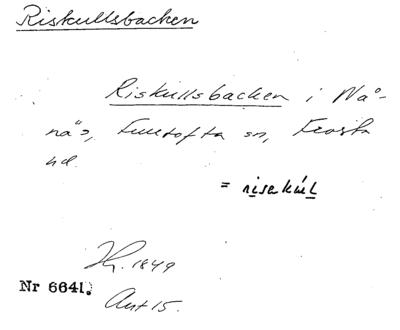 Riskullsbacken
Riskullsbacken i Nå-
nä's, Fulltofta sn, Frosta
hd.
= risakúl
Hr. 1849
Nr 6641.
Ant 15.